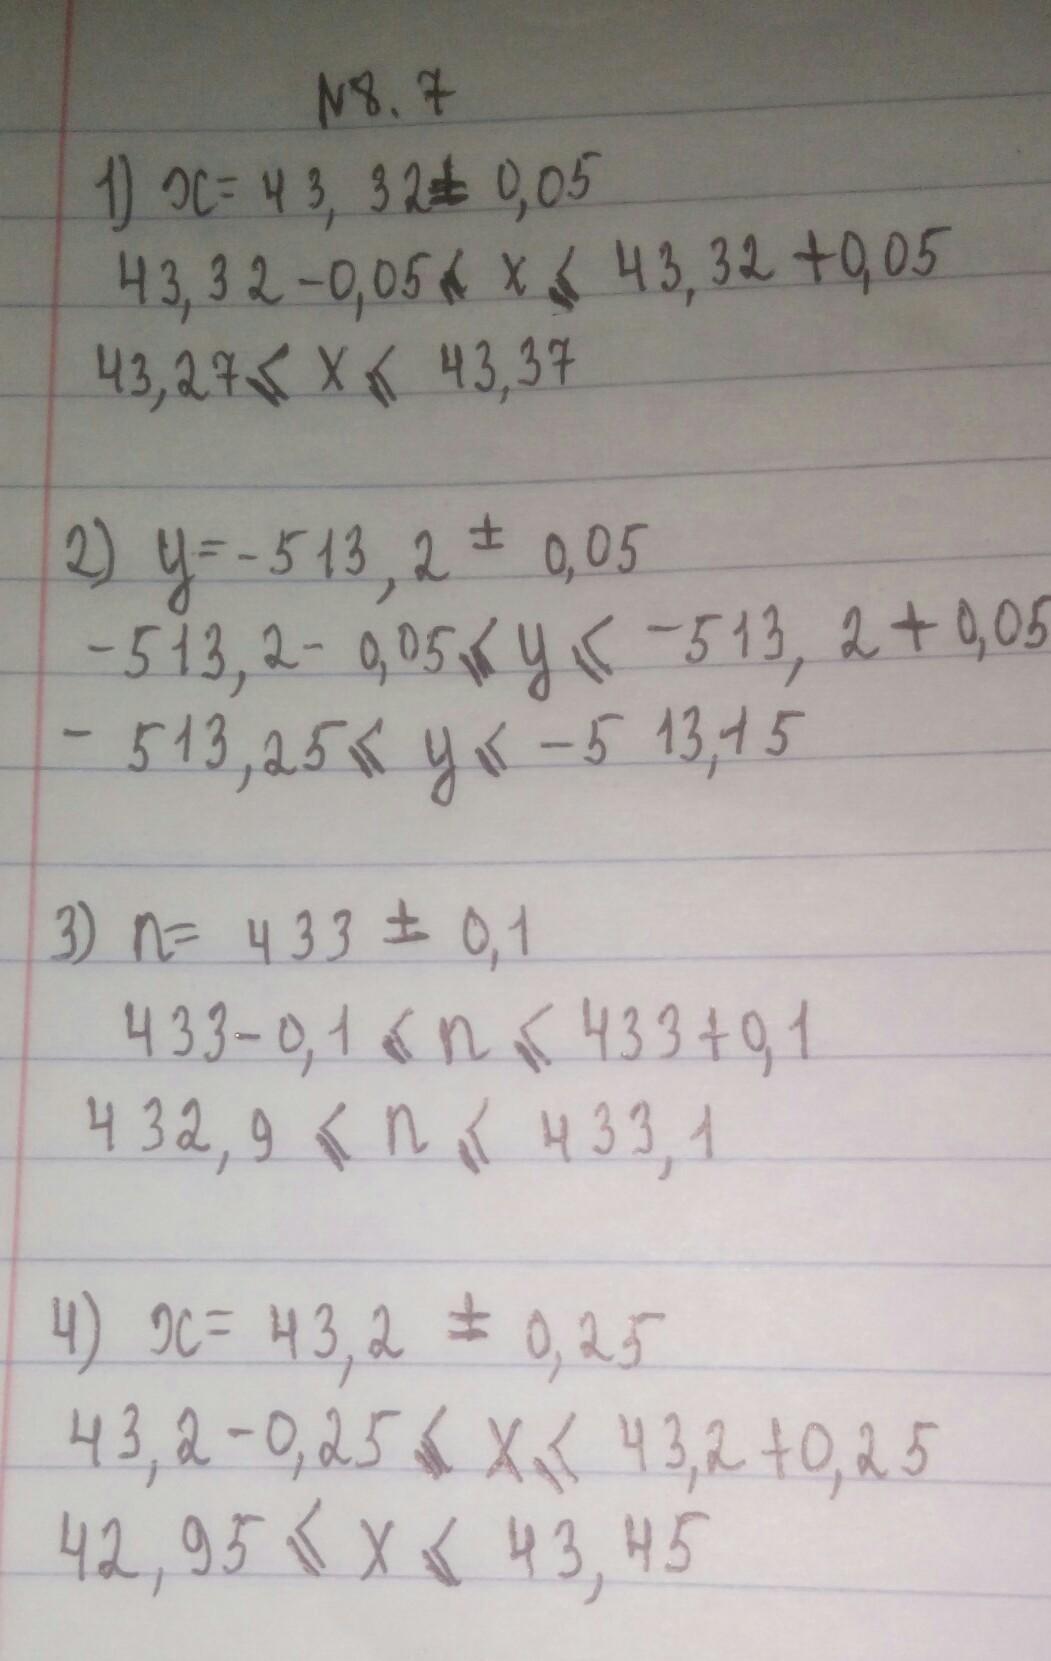 N8.7
1) x= 43,32± 0,05
43,32-0,05⩽ x⩽ 43,32+0,05
43,27⩽ x⩽ 43,37
2) y=-513,2 ± 0,05
-513,2- 0,05⩽ y⩽ -513,2+0,05
- 513,25⩽ y⩽ -513,15
3) n= 433 ± 0,1
433-0,1 ⩽ n ⩽ 433+0,1
432,9 ⩽ n ⩽ 433,1
4) x= 43,2 ± 0,25
43,2-0,25⩽ x⩽ 43,2+0,25
42,95 ⩽ x ⩽ 43,45